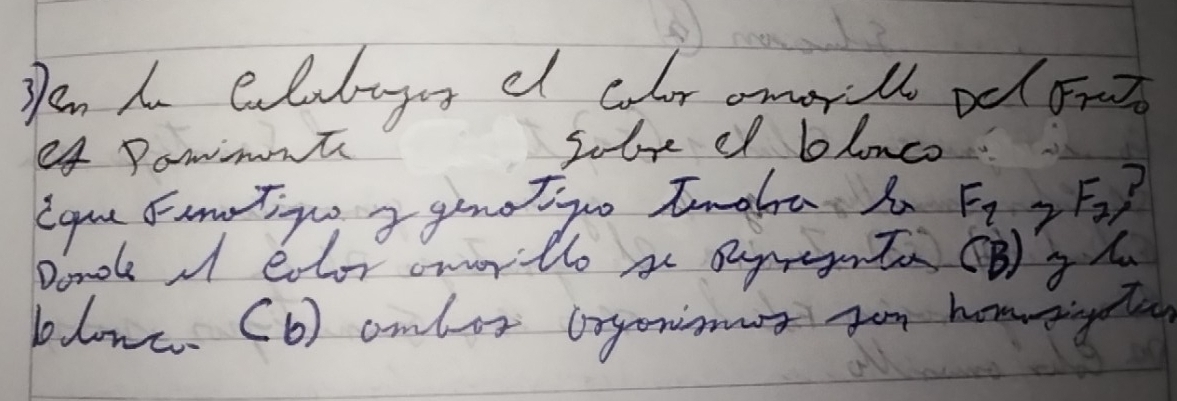 3) en la Calabazas el Color amarillo Del Fruto
es Dominante sobre el blanco
¿que Fenotipo y genotipo tendra la F1 y F2?
Donde el Color amarillo se Representa (B) y la
blanca (b) ambos organismos son homosigotas